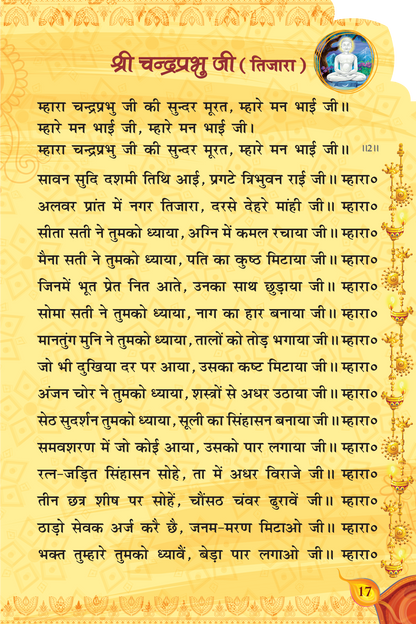 श्री चन्द्रप्रभु जी ( तिजारा )
म्हारा चन्द्रप्रभु जी की सुन्दर मूरत, म्हारे मन भाई जी॥
म्हारे मन भाई जी, म्हारे मन भाई जी।
म्हारा चन्द्रप्रभु जी की सुन्दर मूरत, म्हारे मन भाई जी॥ ॥2॥
सावन सुदि दशमी तिथि आई, प्रगटे त्रिभुवन राई जी॥ म्हारा०
अलवर प्रांत में नगर तिजारा, दरसे देहरे मांही जी॥ म्हारा०
सीता सती ने तुमको ध्याया, अग्नि में कमल रचाया जी॥ म्हारा०
मैना सती ने तुमको ध्याया, पति का कुष्ठ मिटाया जी॥ म्हारा०
जिनमें भूत प्रेत नित आते, उनका साथ छुड़ाया जी॥ म्हारा०
सोमा सती ने तुमको ध्याया, नाग का हार बनाया जी॥ म्हारा०
मानतुंग मुनि ने तुमको ध्याया, तालों को तोड़ भगाया जी॥ म्हारा०
जो भी दुखिया दर पर आया, उसका कष्ट मिटाया जी॥ म्हारा०
अंजन चोर ने तुमको ध्याया, शस्त्रों से अधर उठाया जी॥ म्हारा०
सेठ सुदर्शन तुमको ध्याया, सूली का सिंहासन बनाया जी॥ म्हारा०
समवशरण में जो कोई आया, उसको पार लगाया जी॥ म्हारा०
रत्न-जड़ित सिंहासन सोहे, ता में अधर विराजे जी॥ म्हारा०
तीन छत्र शीष पर सोहें, चौंसठ चंवर ढुरावें जी॥ म्हारा०
ठाड़ो सेवक अर्ज करै छै, जनम-मरण मिटाओ जी॥ म्हारा०
भक्त तुम्हारे तुमको ध्यावैं, बेड़ा पार लगाओ जी॥ म्हारा०
17